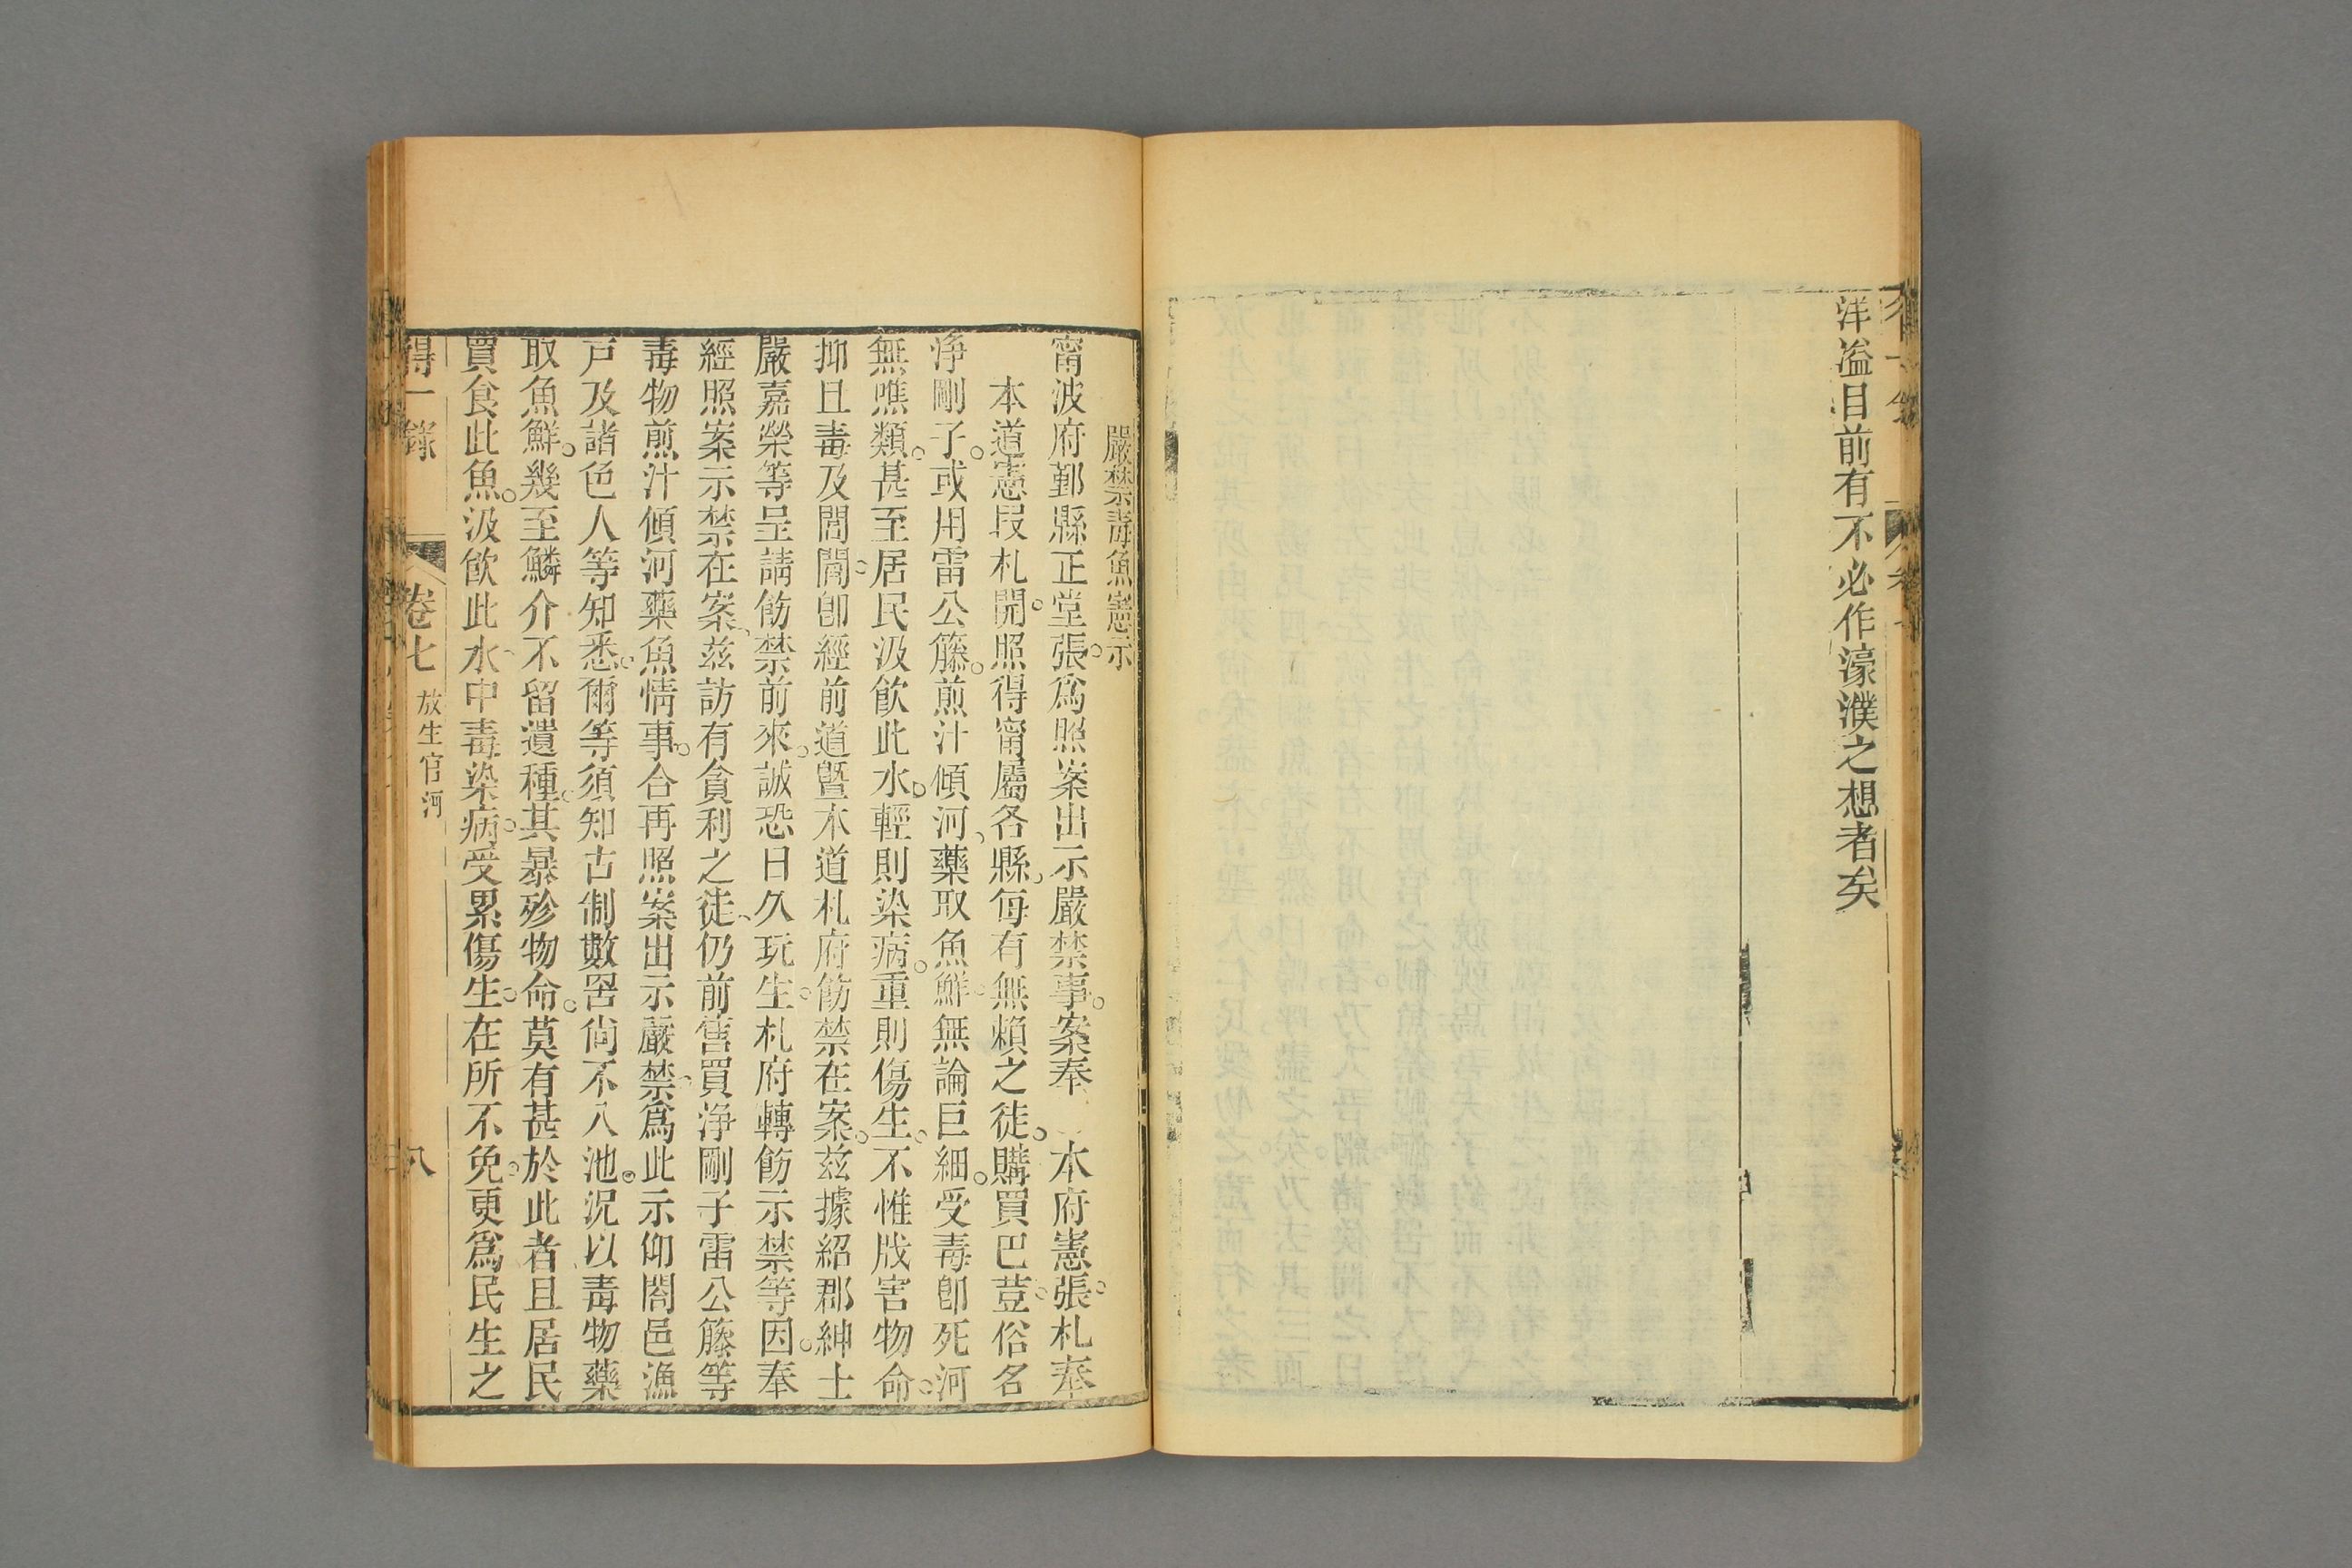 洋溢目前有不必作濠濮之想者矣
嚴禁毒魚憲示
甯波府鄞縣正堂張。爲照案出示嚴禁事。案奉 本府憲張。札奉
本道憲段札開。照得甯屬各縣。每有無賴之徒。購買巴荳。俗名
淨剛子。或用雷公籐。煎汁傾河、藥取魚鮮。無論巨細。受毒卽死。河
無噍類。甚至居民汲飮此水。輕則染病。重則傷生。不惟戕害物命。
抑且毒及閭閻。卽經前道曁本道札府飭禁在案。茲據紹郡紳士
嚴嘉榮等呈請飭禁前來。誠恐日久玩生。札府轉飭示禁等因。奉
經照案示禁在案、茲訪有貪利之徒、仍前舊買淨剛子雷公籐等
毒物煎汁傾河藥魚情事。合再照案出示嚴禁、爲此示仰閤邑漁
戸及諸色人等知悉。爾等須知古制數罟尙不入池。况以毒物藥
取魚鮮。幾至鱗介不留遺種。其暴殄物命。莫有甚於此者、且居民
買食此魚。汲飮此水、中毒染病。受累傷生。在所不免。更爲民生之
得一錄
卷七
放生官河
八